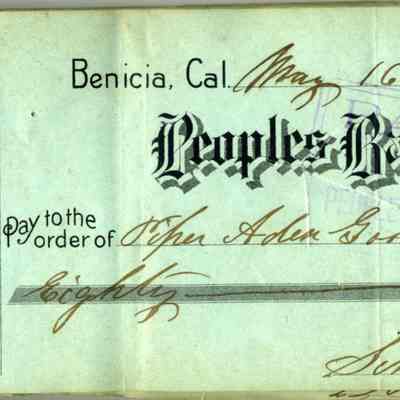 Benicia, Cal. May 16
Peoples Ba
Pay to the order of Piper Aden Goo
Eighty